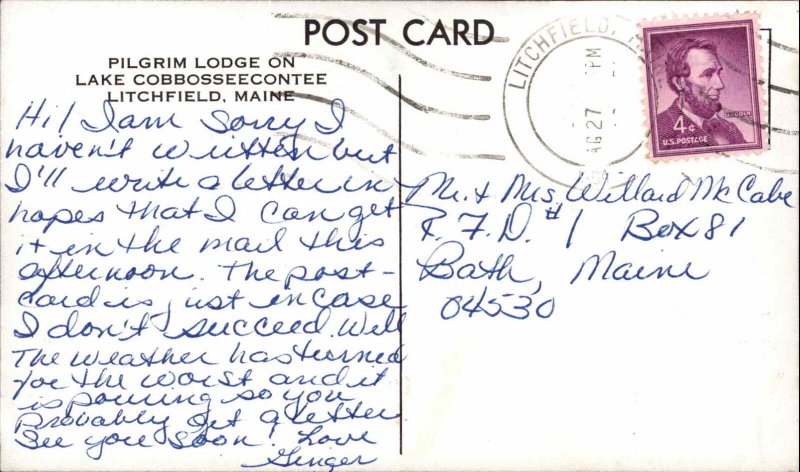 POST CARD
PILGRIM LODGE ON
LAKE COBBOSSEECONTEE
LITCHFIELD, MAINE
LITCHFIELD,
PM
AG 27
LINCOLN
4¢
U.S. POSTAGE
Hi! I am sorry I
haven't written but
I'll write a letter in
hopes that I can get
it in the mail this
afternoon. The post-
card is just in case
I don't succeed. Well
The weather has turned
for the worst and it
is pouring so you
probably get a letter.
See you soon! Love
Ginger
Mr. + Mrs. Willard McCabe
R. F. D. #1 Box 81
Bath, Maine
04530